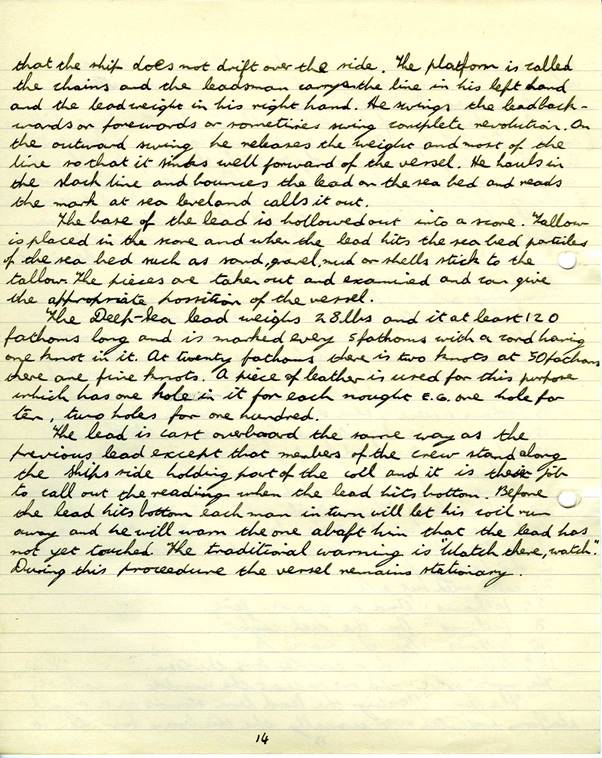 that the ship does not drift over the side. The platform is called
the chains and the leadsman carrys the line in his left hand
and the lead weight in his right hand. He swings the lead back-
wards or forewords or sometimes swing complete revolution. On
the outward swing he releases the weight and most of the
line so that it sinks well forward of the vessel. He hauls in
the slack line and bounces the lead on the sea bed and reads
the mark at sea level and calls it out.
The base of the lead is hollowed out into a score. Tallow
is placed in the score and when the lead hits the sea bed particles
of the sea bed such as sand, gravel, mud or shells stick to the
tallow. The pieces are taken out and examined and can give
the appropriate possition of the vessel.
The Deep-Sea lead weighs 28 lbs and it at least 120
fathoms long and is marked every 5 fathoms with a cord having
one knot in it. At twenty fathoms there is two knots at 50 fathoms
there are five knots. A piece of leather is used for this purpose
which has one hole in it for each nought E.G. one hole for
ten, two holes for one hundred.
The lead is cast overboard the same way as the
previous lead except that members of the crew stand along
the ships side holding part of the coil and it is their job
to call out the reading when the lead hits bottom. Before
the lead hits bottom each man in turn will let his coil run
away and he will warn the one abaft him that the lead has
not yet touched. The traditional warning is "Watch there, watch".
During this proceedure the vessel remains stationary.
14